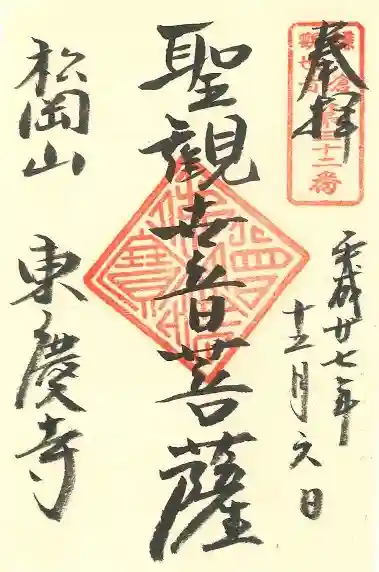 奉拝
鎌倉
第三十二番
平成廿七年
十二月六日
聖觀世音菩薩
松岡山 東慶寺